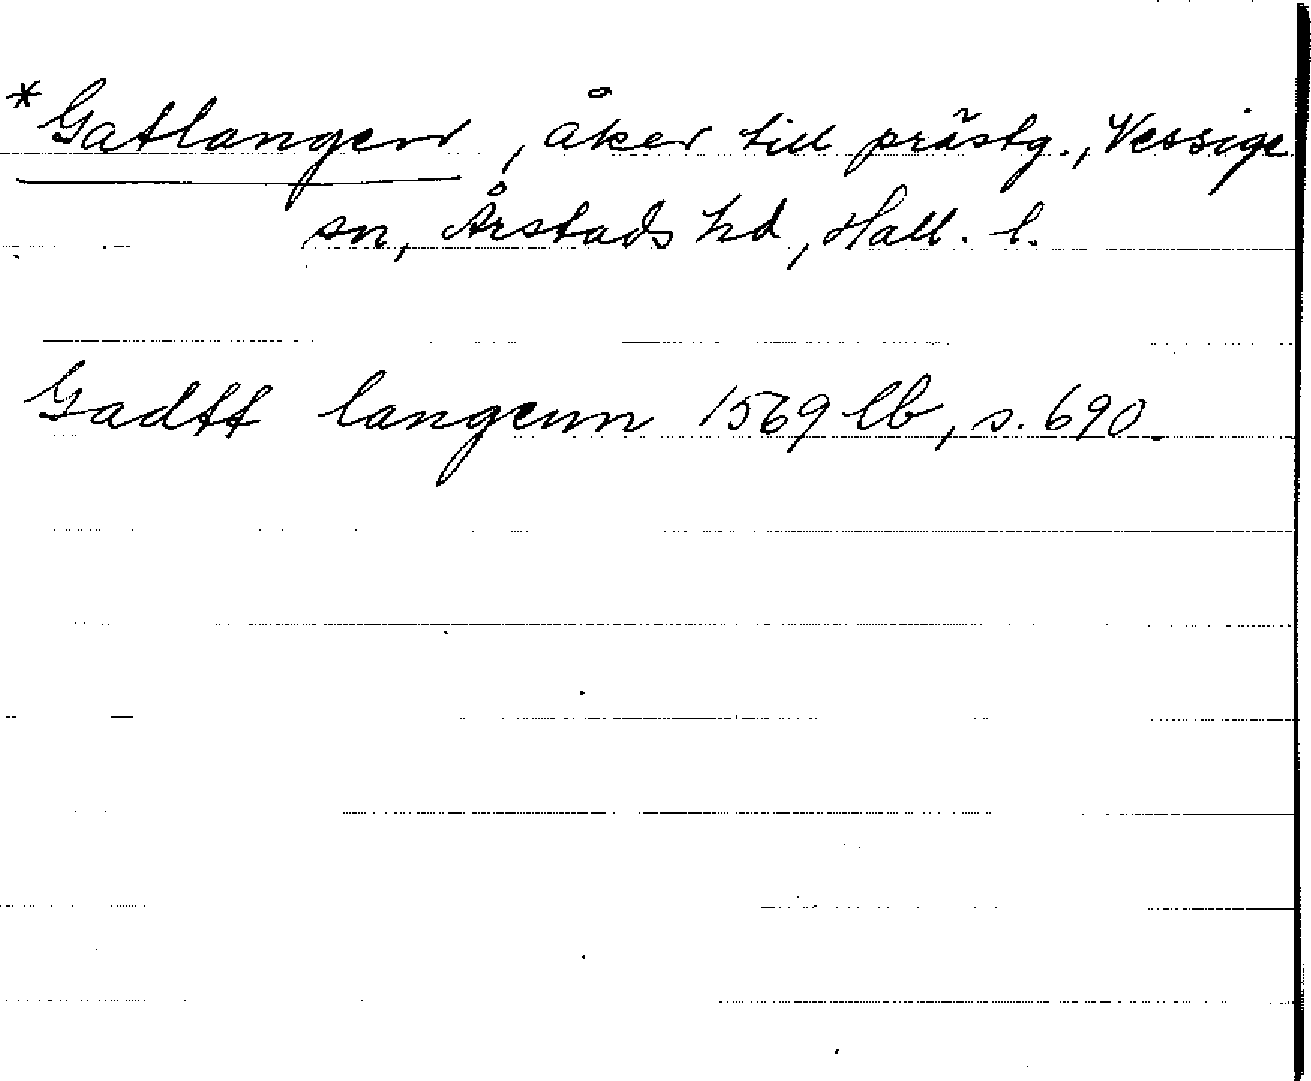 *Gatlangen, åker till prästg., Vessige
sn, Årstads hd, Hall. l.
Gadtt langenn 1569 lb, s. 690.